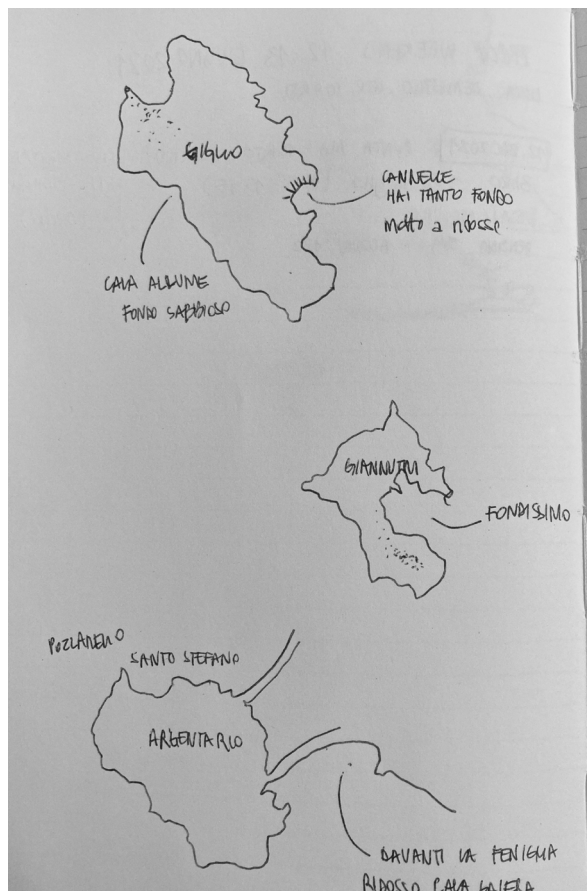 GIGLIO
CANNELLE
HAI TANTO FONDO
MOLTO A RIDOSSO
CALA ALLUME
FONDO SABBIOSO
GIANNUTRI
FONDISSIMO
POZZARELLO
SANTO STEFANO
ARGENTARIO
DAVANTI LA FENIGLIA
RIDOSSO CALA GALERA